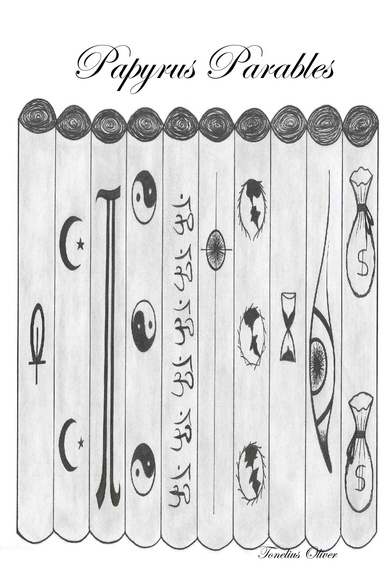 Papyrus Parables
$
$
Tonelius Oliver